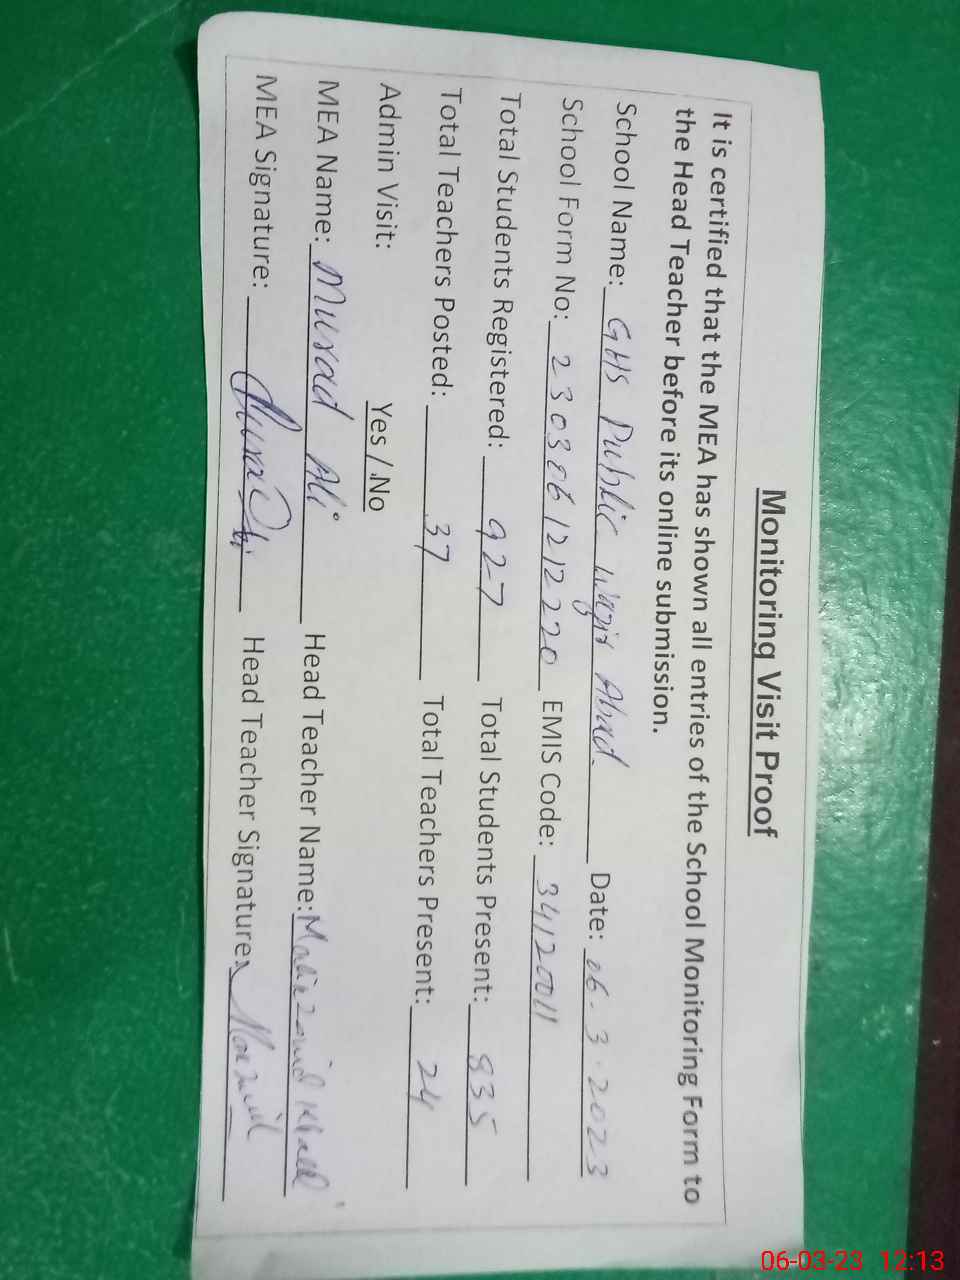 Monitoring Visit Proof
It is certified that the MEA has shown all entries of the School Monitoring Form to
the Head Teacher before its online submission.
School Name: GHS Public Wazir Abad. Date: 06.3.2023
School Form No: 2303061212220 EMIS Code: 34120011
Total Students Registered: 927 Total Students Present: 835
Total Teachers Posted: 37 Total Teachers Present: 24
Admin Visit: Yes / No
MEA Name: Murad Ali Head Teacher Name:
MEA Signature: Head Teacher Signature:
06-03-23 12:13